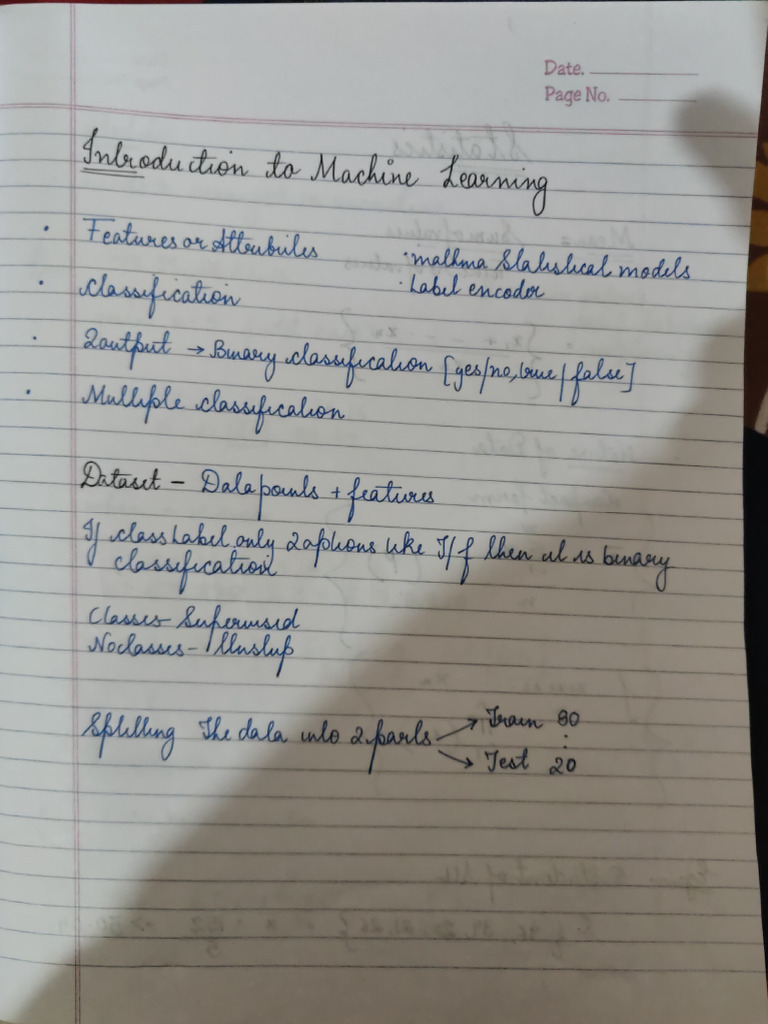 Date.
Page No.
Introduction to Machine Learning
· Features or Attributes
· mathma Statistical models
· classification
· Label encoder
· 2output → Binary classification [yes/no, true/false]
· Multiple classification
Dataset - Datapoints + features
If class Label only 2options like T/f then it is binary
classification
Classes - Supervised
Noclasses - Unsup
Splitting The data into 2 parts → Train 80
:
→ Test 20